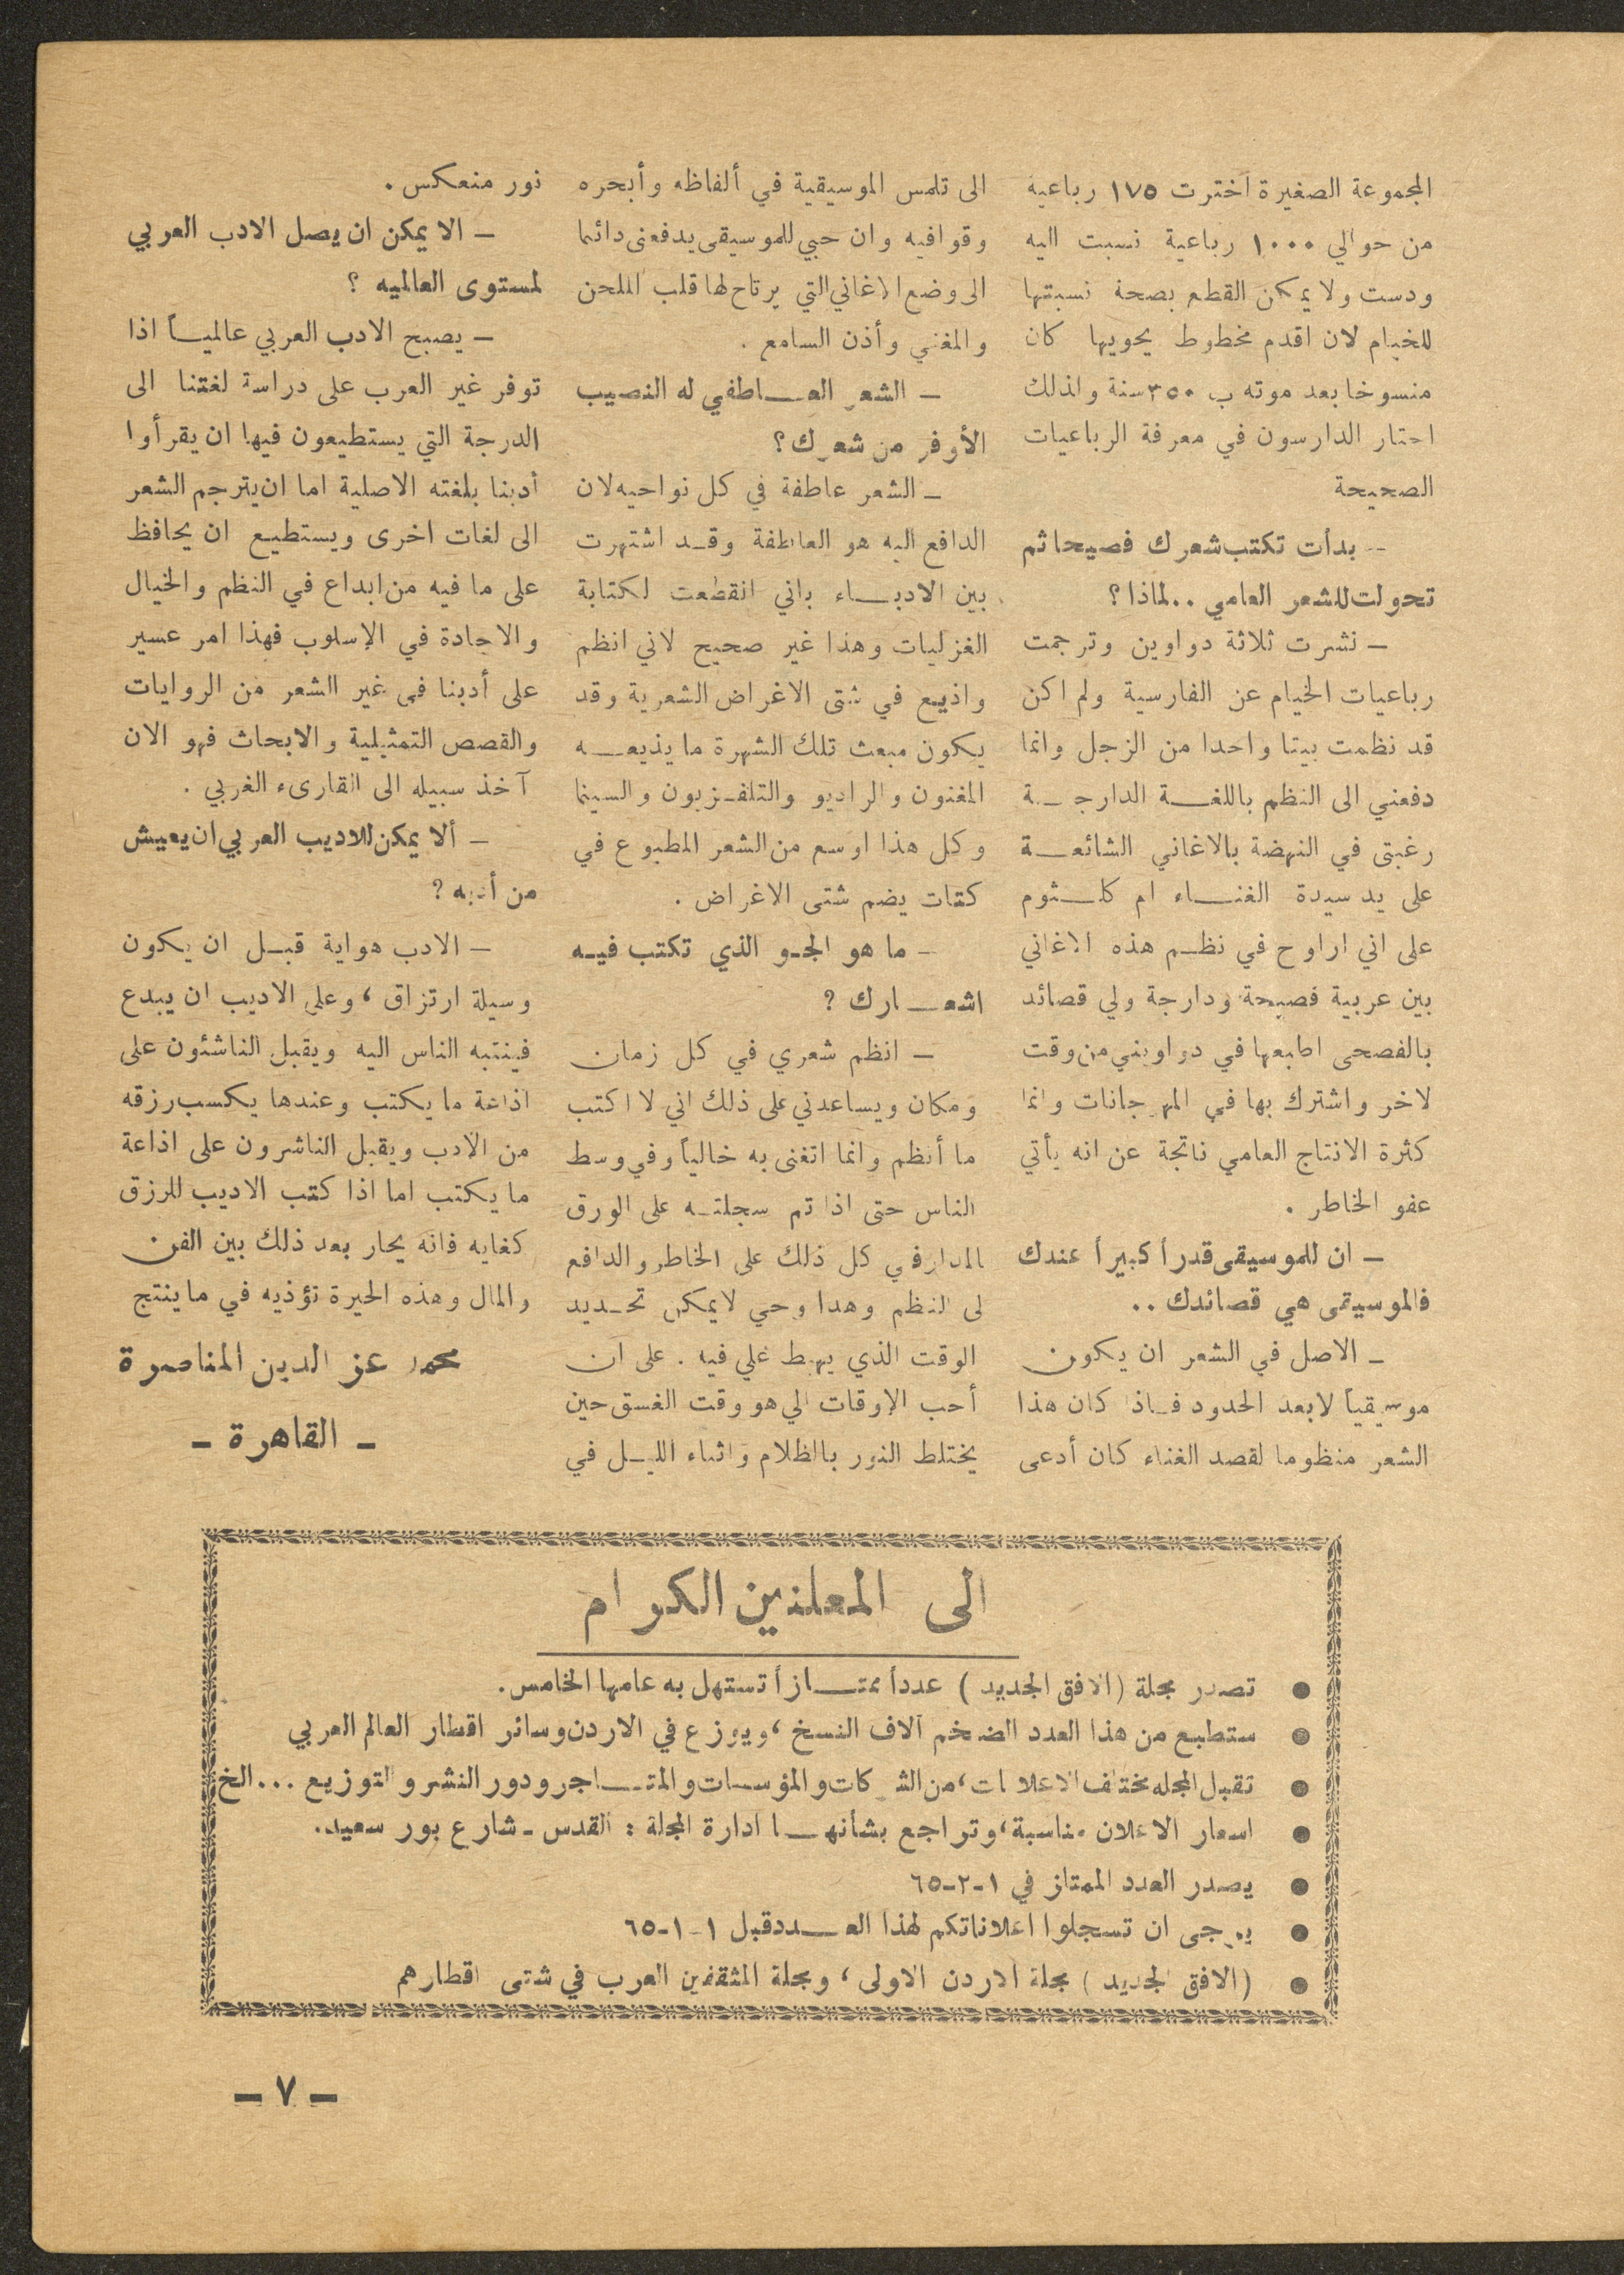 المجموعة الصغيرة اخترت ١٧٥ رباعية
من حوالي ١٠٠٠ رباعية نسبت اليه
ودست ولا يمكن القطع بصحة نسبتها
للخيام لان اقدم مخطوط يحويها كان
منسوخا بعد موته ب ٣٥٠ سنة ولذلك
احتار الدارسون في معرفة الرباعيات
الصحيحة
-- بدأت تكتب شعرك فصيحا ثم
تحولت للشعر العامي .. لماذا ؟
— نشرت ثلاثة دواوين وترجمت
رباعيات الخيام عن الفارسية ولم اكن
قد نظمت بيتا واحدا من الزجل وانما
دفعني الى النظم باللغـة الدارجـة
رغبتى في النهضة بالاغاني الشائعـة
على يد سيدة الغنـاء ام كلـثوم
على اني اراوح في نظـم هذه الاغاني
بين عربية فصيحة ودارجة ولي قصائد
بالفصحى اطبعها في دواويني من وقت
لاخر واشترك بها في المهرجانات وانما
كثرة الانتاج العامي ناتجة عن انه يأتي
عفو الخاطر .
— ان للموسيقى قدرأ كبيرأ عندك
فالموسيقى هي قصائدك ..
— الاصل في الشعر ان يكون
موسيقيأ لابعد الحدود فـاذا كان هذا
الشعر منظوما لقصد الغناء كان أدعى
الى تلمس الموسيقية في ألفاظه وأبحره
وقوافيه وان حبي للموسيقى يدفعنى دائما
الى وضع الاغاني التي يرتاح لها قلب الملحن
والمغني وأذن السامع .
— الشعر العـاطفي له النصيب
الأوفر من شعرك ؟
— الشعر عاطفة في كل نواحيه لان
الدافع اليه هو العاطفة وقـد اشتهرت
بين الادبـاء باني انقطعت لكتابة
الغزليات وهذا غير صحيح لاني انظم
واذيع في شتى الاغراض الشعرية وقد
يكون مبعث تلك الشهرة ما يذيعـه
المغنون والراديو والتلفـزيون والسينما
وكل هذا اوسع من الشعر المطبوع في
كتات يضم شتى الاغراض .
— ما هو الجـو الذي تكتب فيـه
اشعـارك ؟
— انظم شعري في كل زمان
ومكان ويساعدني على ذلك اني لا اكتب
ما أنظم وانما اتغنى به خالياً وفي وسط
الناس حتى اذا تم سجلتـه على الورق
المدار في كل ذلك على الخاطر والدافع
لى النظم وهدا وحي لا يمكن تحـديد
الوقت الذي يهبط علي فيه . على ان
أحب الاوقات الي هو وقت الغسق حين
يختلط النور بالظلام واثناء الليـل في
نور منعكس .
— الا يمكن ان يصل الادب العربي
لمستوى العالميه ؟
— يصبح الادب العربي عالميـاً اذا
توفر غير العرب على دراسة لغتنا الى
الدرجة التي يستطيعون فيها ان يقرأوا
أدبنا بلغته الاصلية اما ان يترجم الشعر
الى لغات اخرى ويستطيع ان يحافظ
على ما فيه من ابداع في النظم والخيال
والاجادة في الإسلوب فهذا امر عسير
على أدبنا فى غير الشعر من الروايات
والقصص التمثيلية والابحاث فهو الان
آخذ سبيله الى القارىء الغربي .
— ألا يمكن للاديب العربي ان يعيش
من أدبه ؟
— الادب هواية قبـل ان يكون
وسيلة ارتزاق ، وعلى الاديب ان يبدع
فينتبه الناس اليه ويقبل الناشئون على
اذاعة ما يكتب وعندها يكسب رزقه
من الادب ويقبل الناشرون على اذاعة
ما يكتب اما اذا كتب الاديب للرزق
كغايه فانه يحار بعد ذلك بين الفن
والمال وهذه الحيرة تؤذيه في ما ينتج
محمد عز الدين المناصرة
— القاهرة —
الى المعلنين الكرام
● تصدر مجلة (الافق الجديد ) عددأ ممتـازأ تستهل به عامها الخامس.
● ستطبع من هذا العدد الضخم آلاف النسخ ، ويوزع في الاردن وسائر اقطار العالم العربي
● تقبل المجله مختلف الاعلانات ، من الشركات والمؤسسات والمتـاجر ودور النشر والتوزيع ... الخ
● اسعار الاعلان مناسبة ، وتراجع بشأنهـا ادارة المجلة : القدس - شارع بور سعيد.
● يصدر العدد الممتاز في ١-٢-٦٥
● يرجى ان تسجلوا اعلاناتكم لهذا العـدد قبل ١-١-٦٥
● (الافق الجديد ) مجلة الاردن الاولى ، ومجلة المثقفين العرب في شتى اقطارهم
— ٧ —